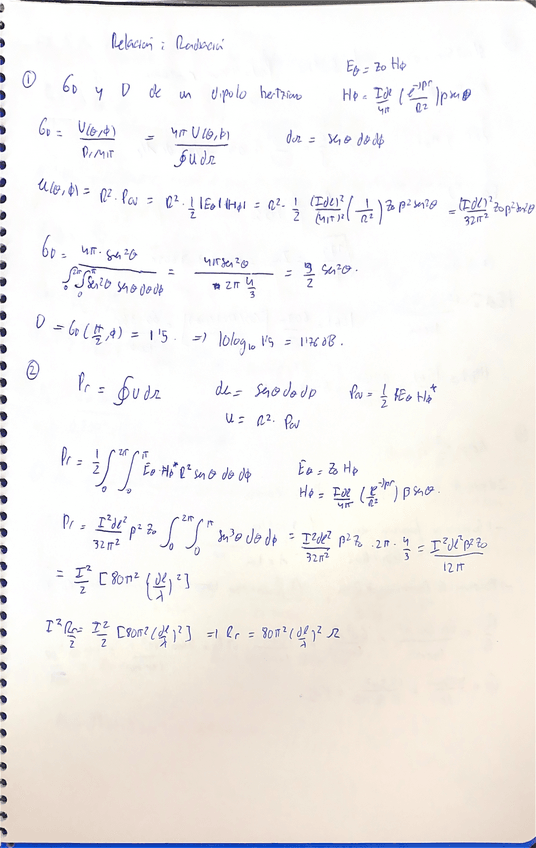 Relación: Radiación
E_θ = Z_0 H_ϕ
① G_D y D de un dipolo hertziano H_ϕ = Idl/4π (e^{-jβr}/R²) β senθ
G_D = U(θ,ϕ)/P_r/4π = 4π U(θ,ϕ)/∮U dΩ dΩ = senθ dθ dϕ
U(θ,ϕ) = R² · P_av = R² · 1/2 |E_θ| |H_ϕ| = R² · 1/2 (Idl)²/(4π)² (1/R²) Z_0 β² sen²θ = (Idl)²/32π² Z_0 β² sen²θ
G_D = 4π · sen²θ / ∫_0^{2π} ∫_0^π sen²θ senθ dθ dϕ = 4π sen²θ / 2π 4/3 = 3/2 sen²θ.
D = G_D (π/2, ϕ) = 1'5. => 10log_10 1'5 = 1'76 dB.
② P_r = ∮U dΩ dΩ = senθ dθ dϕ P_av = 1/2 E_θ H_ϕ*
U = R² · P_av
P_r = 1/2 ∫_0^{2π} ∫_0^π E_θ · H_ϕ* R² senθ dθ dϕ E_θ = Z_0 H_ϕ
H_ϕ = Idl/4π (e^{-jβr}/R) β senθ.
P_r = I²dl²/32π² β² Z_0 ∫_0^{2π} ∫_0^π sen³θ dθ dϕ = I²dl²/32π² β² Z_0 · 2π · 4/3 = I²dl²β²Z_0/12π
= I²/2 [80π² (dl/λ)²]
I² R_r/2 = I²/2 [80π² (dl/λ)²] => R_r = 80π² (dl/λ)² Ω